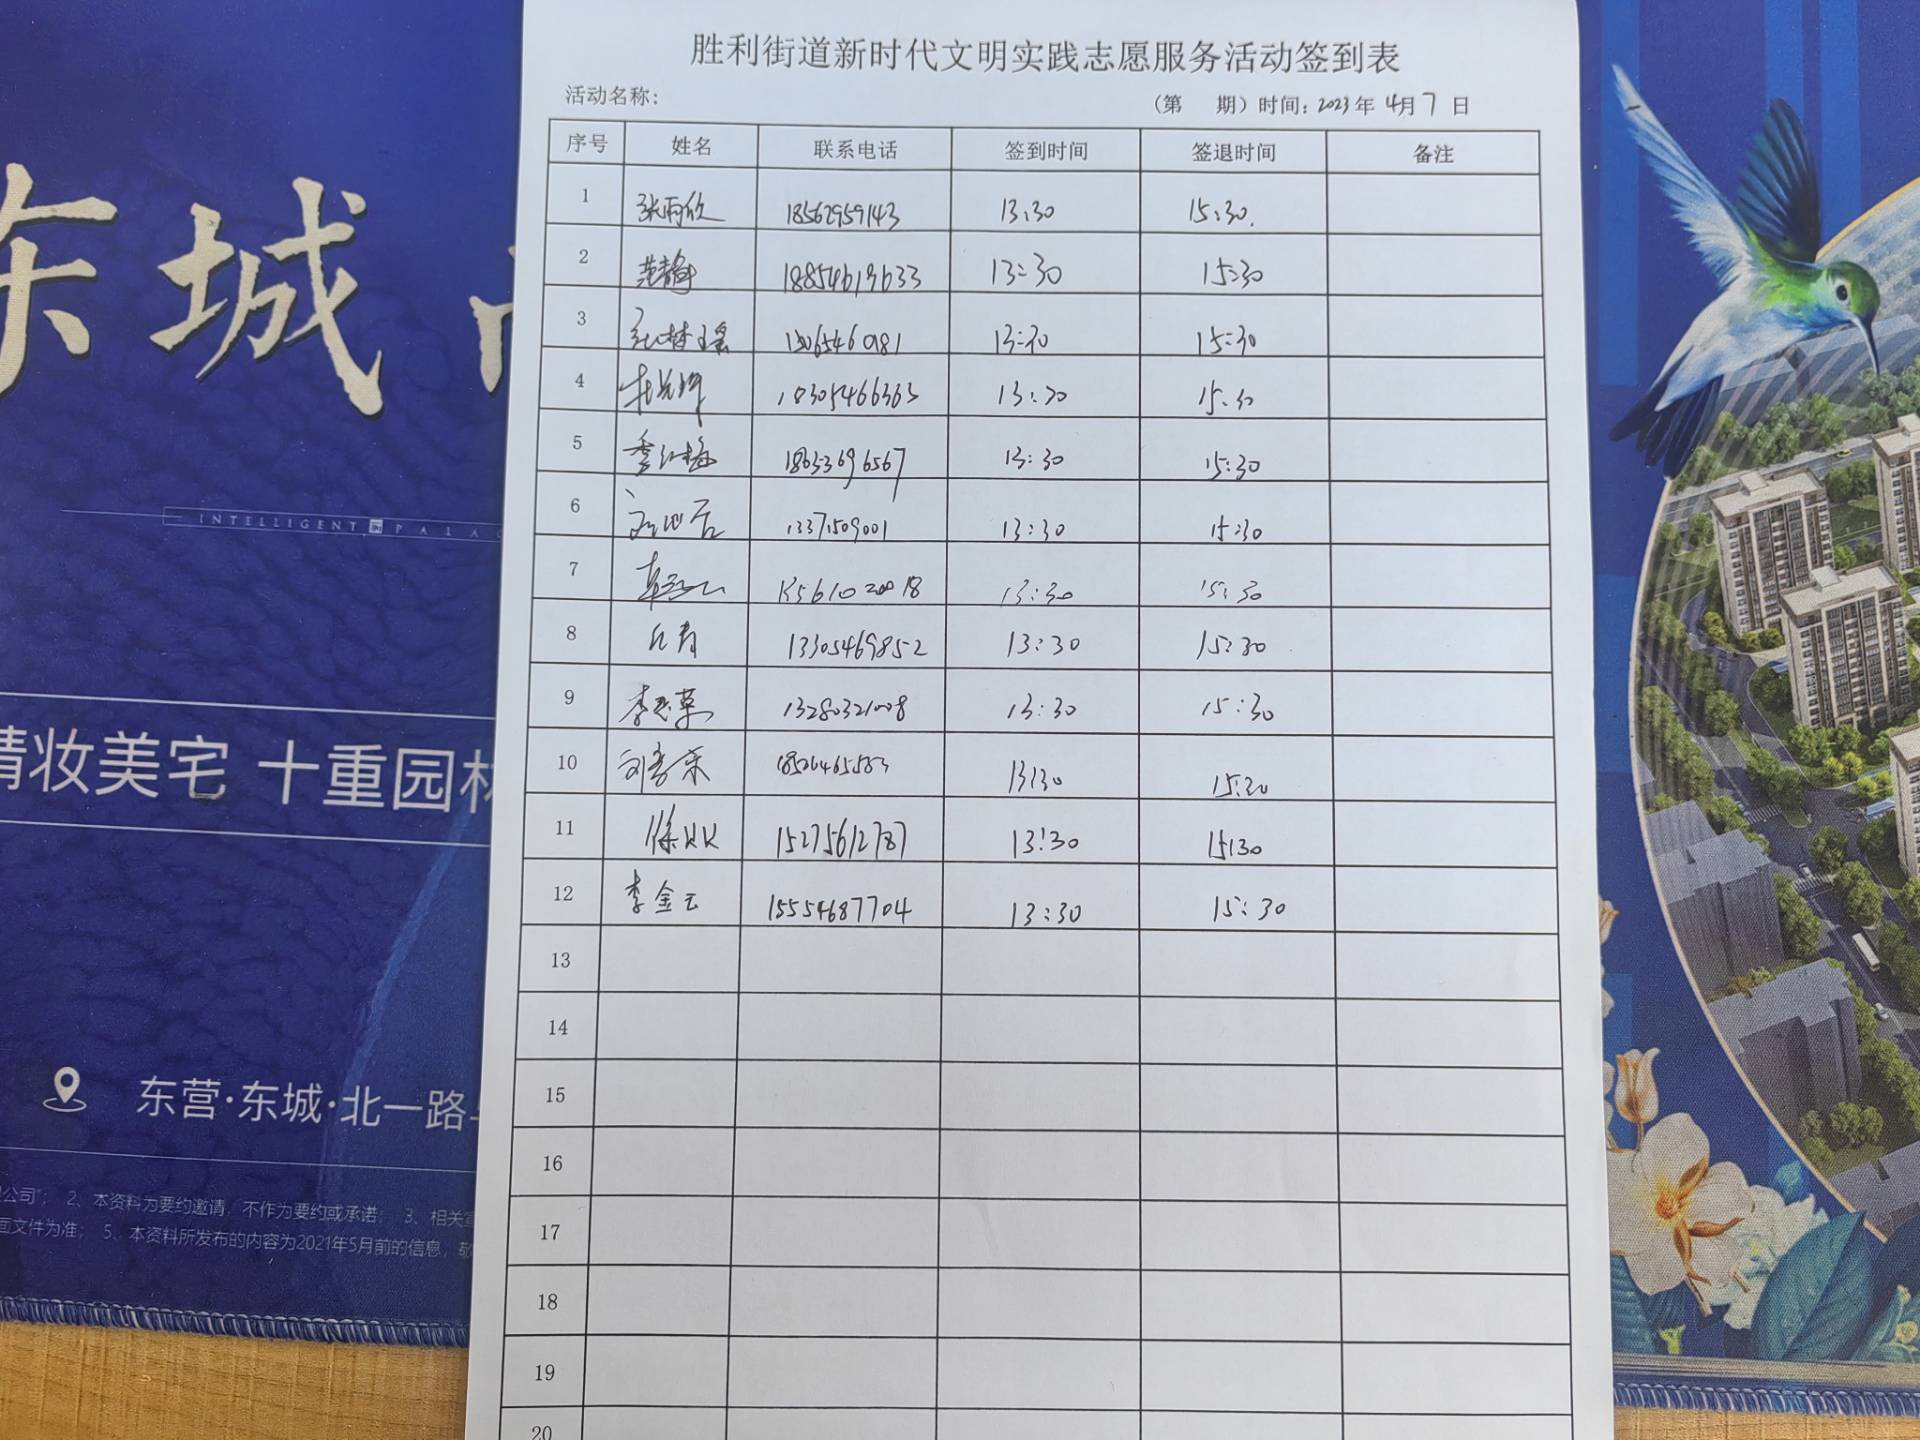 胜利街道新时代文明实践志愿服务活动签到表
活动名称： （第 期）时间：2023年 4月 7日
序号 姓名 联系电话 签到时间 签退时间 备注
1 张雨欣 18562959143 13:30 15:30.
2 范静 18854613633 13:30 15:30
3 13:30 15:30
4 18305466363 13:30 15:30
5 季红梅 18633696567 13:30 15:30
6 13371509001 13:30 15:30
7 13:30 15:30
8 13305469852 13:30 15:30
9 13280321008 13:30 15:30
10 刘秀荣 13:30 15:30
11 徐 15275612787 13:30 15:30
12 李金云 15554687704 13:30 15:30
13
14
15
16
17
18
19
20
东城
INTELLIGENT PALAC
精妆美宅 十重园林
东营·东城·北一路
公司"； 2、本资料为要约邀请，不作为要约或承诺； 3、相关
面文件为准； 5、本资料所发布的内容为2021年5月前的信息，敬